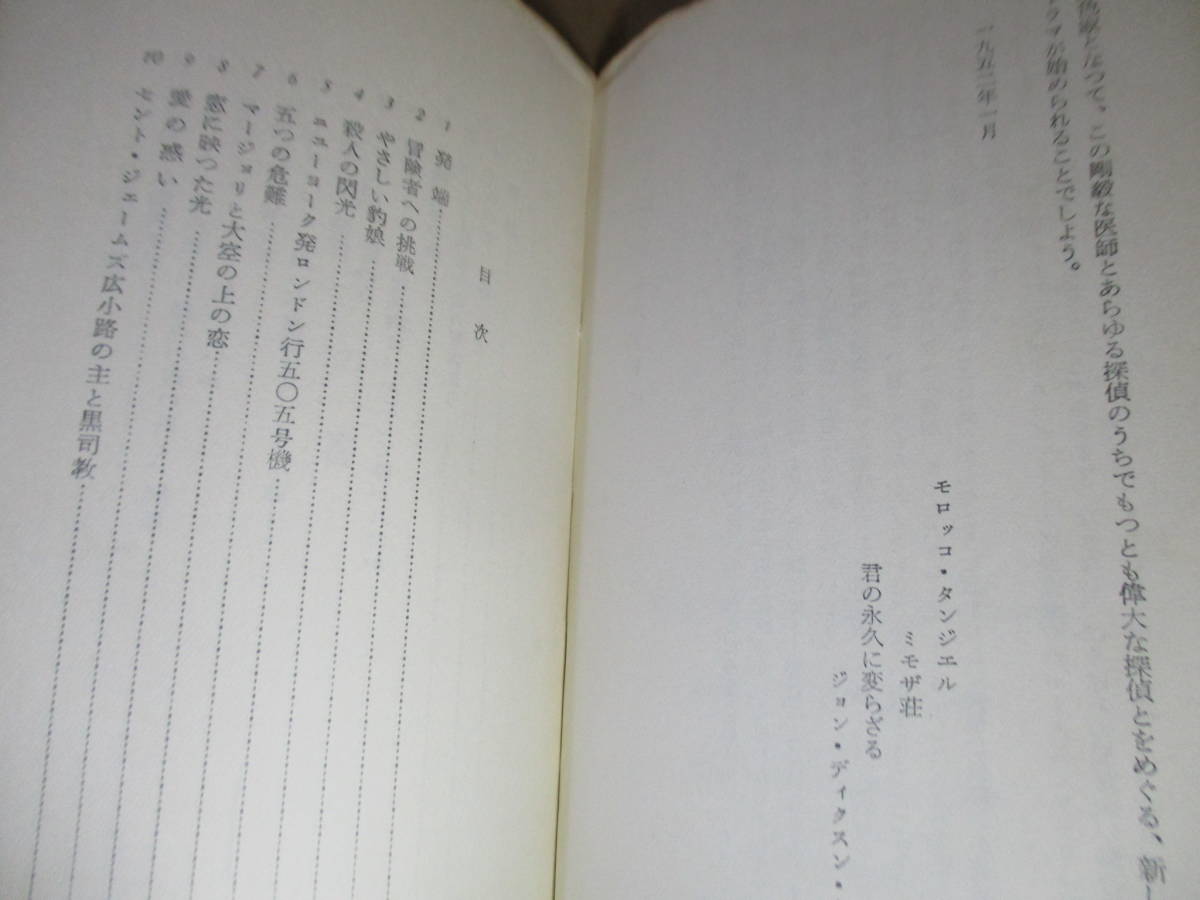 とつて、この剛毅な医師とあらゆる探偵のうちでもつとも偉大な探偵とをめぐる、新し
ラマが始められることでしよう。
一九五二年一月
モロッコ・タンジエル
ミモザ荘
君の永久に変らざる
ジョン・ディクスン・
目次
1 発端
2 冒険者への挑戦
3 やさしい豹娘
4 殺人の閃光
5 ニューヨーク発ロンドン行五〇五号機
6 五つの危難
7 マージョリと大空の上の恋
8 窓に映つた光
9 愛の惑い
10 セント・ジェームズ広小路の主と黒司教